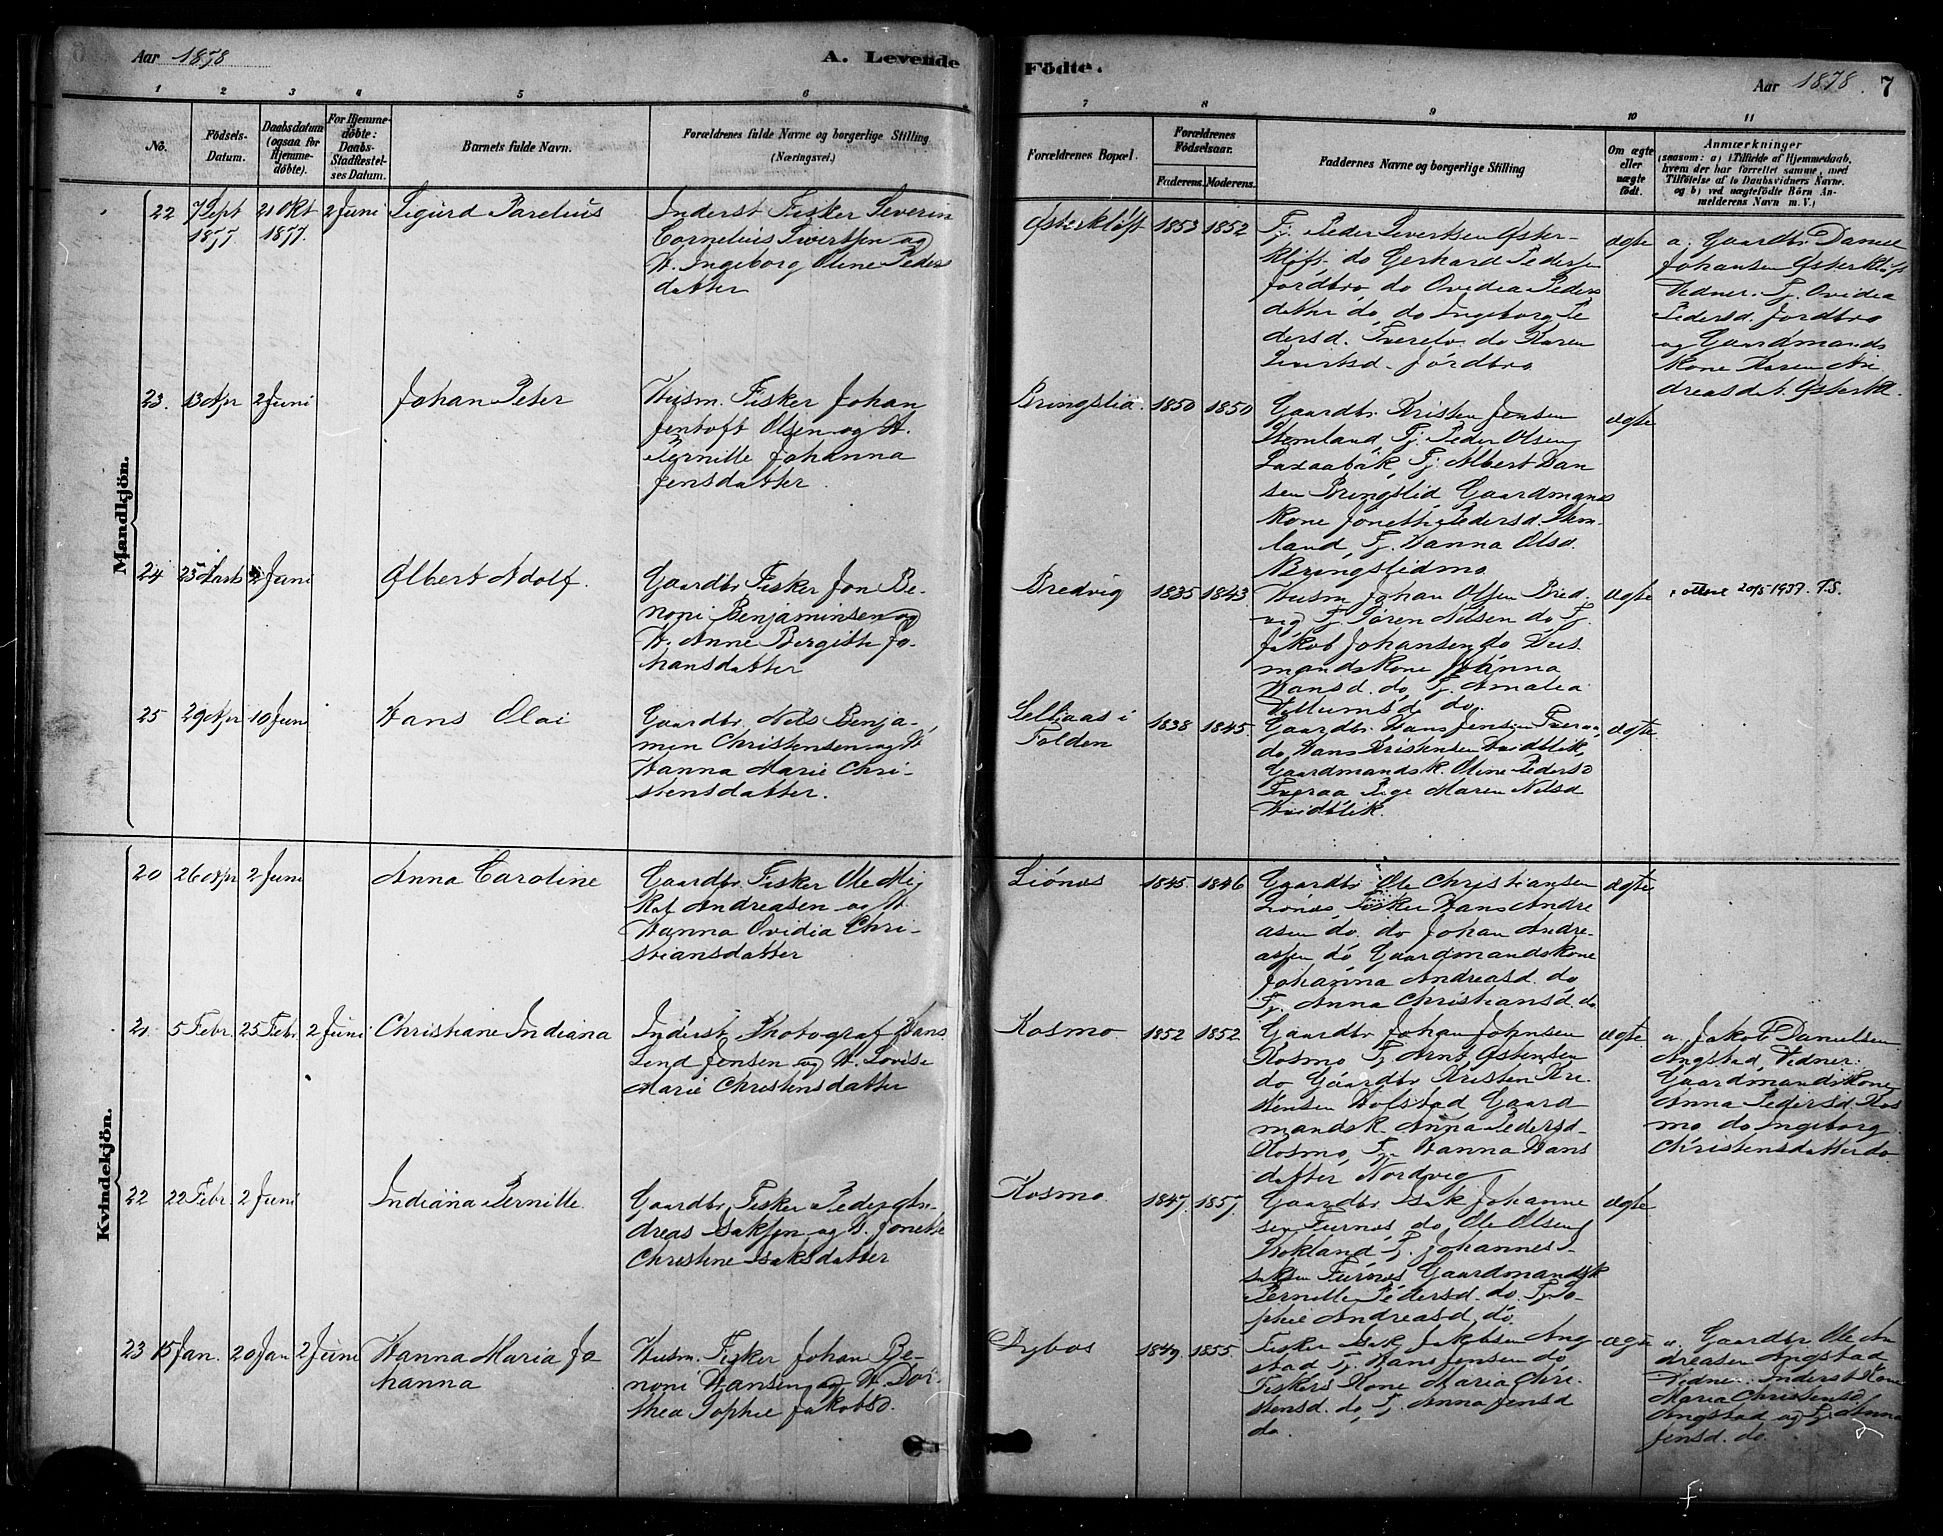 Aar 1878
A. Levende
Födte.
Aar 1878.
7
1
2
3
4
5
6
7
8
9
10
11
No.
Födsels-
Datum.
Daabsdatum
(ogsaa for
Hjemme-
döbte).
For Hjemme-
döbte:
Daabs-
Stadfæstel-
ses Datum.
Barnets fulde Navn.
Forældrenes fulde Navne og borgerlige Stilling
(Næringsvei.)
Forældrenes Bopæl.
Forældrenes
Födselsaar.
Faderens.
Moderens.
Faddernes Navne og borgerlige Stilling
Om ægte
eller
uægte
födt.
Anmærkninger
(saasom: a) i Tilfælde af Hjemmedaab,
hvem der har forrettet samme, med
Tilföielse af to Daabsvidners Navne,
og b) ved uægtefödte Börn An-
melderens Navn m. V.)
Mandkjön.
22
7 Sept
1877
21 Okt
1877.
2 Juni
Sigurd Parelius
Inderst Fisker Severin
Cornelius Sivertsen og
H. Ingeborg Oline Peders
datter
Østerkløft
1853
1852
Tj. Peder Sivertsen Øster-
kløft. do Gerhard Pedersen
Jordbro, do Ovidia Peders
datter do, do Ingeborg Pe
dersd. Tverelv. do Karen
Sivertsd. Jordbro
ægte
a, Gaardbr. Daniel
Johansen Østerkløft
Vidner. Tj. Ovidia
Pedersd. Jordbro
og Gaardmands
Kone Karen An
dreasdt. Østerkl.
23.
13 Apr
2 Juni
Johan Peter
Husm. Fisker Johan
Jentoft Olsen og H.
Pernille Johanna
Jensdatter.
Bringslid.
1850
1850
Gaardbr. Kristen Jensen
Stemland, Tj. Peder Olsen
Laxaabak, Tj. Albert Dan
sen Bringslid, Gaardmands
Kone Jonette Pedersd. Stem-
land, Tj. Hanna Olsd.
Bringslidmo
ægte
24
25 Marts
2 Juni
Albert Adolf.
Gaardbr. Fisker Jon Be-
noni Benjaminsen og
H. Anne Bergitte Jo-
hansdatter
Bredvig
1835
1843
Husm. Johan Olsen Bred-
vig Tj. Sören Nilsen do Tj.
Jakob Johansen do Hus
mandskone Johanna
Hansd. do Tj. Amalia
do.
ægte
20/5 1937. T.S.
25
29 Apr
10 Juni
Hans Olai
Gaardbr. Nils Benja-
min Christensen og H
Hanna Marie Chri-
stensdatter.
Seltiaas i
Folden
1838
1845.
Gaardbr. Hans Jensen Tveraa,
do Hans Kristensen Hvidblik,
Gaardmandsk. Oline Pedersd
Tveraa Pige Maren Nilsd
Hvidblik.
ægte
Kvindekjön.
20
26 Apr
2 Juni
Anna Caroline
Gaardbr. Fisker Ole Mi
kal Andreasen og H.
Hanna Ovidia Chri-
stiansdatter
Liönes
1845.
1846
Gaardbr. Ole Christiansen
Liönes, Fisker Hans Andre
asen do. do Johan Andre-
assen do Gaardmandskone
Johanna Andreasd. do
Tj. Anna Christiansd. do
ægte
21.
5 Febr.
25 Febr.
2 Juni
Christiane Indiana
Inderst Photograf Hans
Lind Jensen og H. Lovise
Marie Christensdatter
Kosmo
1852
1852
Gaardbr. Johan Johnsen
Kosmo Tj Arnt Östensen
do Gaardbr. Kristen Kri-
stensen Hofstad Gaard
mandsk. Anna Pedersd-
Kosmo, Tj. Hanna Hans
datter Nordvig
ægte
a. Jakob Danielsen
Angstad, Vidner:
Gaardmandskone
Anna Pedersd. Kos
mo do Ingeborg
Christensdatter do
22
22 Febr.
2 Juni
Indiana Pernille.
Gaardbr. Fisker Peder An-
dreas Isaksen og H. Jonette
Christine Isaksdatter
Kosmo.
1847.
1857.
Gaardbr. Isak Johanne
sen Furnes, do, Ole Olsen
Hokland, Tj. Johannes I-
saksen Furnes, Gaardmandsk
Pernille Pedersd. do. Tj. So-
phie Andreasd. do.
ægte
23
15 Jan.
20 Jan
2 Juni
Hanna Maria Jo
hanna
Husm. Fisker Johan Be-
noni Hansen og H. Dor-
thea Sophie Jakobsd.
1849.
1855.
Fisker Isak Jakobsen Ang-
stad Tj. Hans Jensen do
Fiskers Kone Maria Chri-
stensd. do, Tj. Anna Jensd
do.
ægte
a, Gaardbr. Ole An
dreasen Angstad
Vidner. Inderst Kone
Maria Christensd.
Angstad og Tj. Anna
Jensd. do.